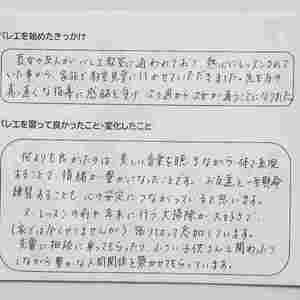 バレエを始めたきっかけ
長女の友人がバレエ教室に通われており、熱心にレッスンされて
いた事から、家族で教室見学に行かせていただきました。先生方の
指導に感銘を受け
バレエを習って良かったこと・変化したこと
何よりも良かったのは、美しい音楽を聴きながら体で表現
することで、情緒が豊かになったことです。お友達と一生懸命
練習することも心の安定につながっていると思います。
又、レッスンの前や年末に行う大掃除が大好きで
(家では全くやりませんが) 張り切って参加しています。
先輩に相談に乗ってもらったり、小さい子供さんと関わったり
しながら豊かな人間関係を築かせてもらっています。